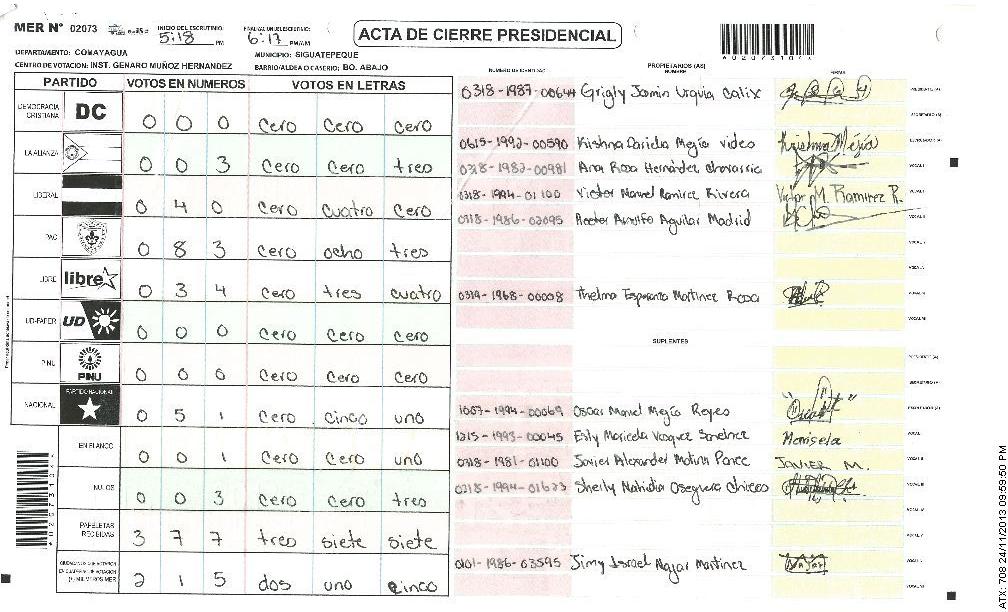 MER N° 02073 INICIO DEL ESCRUTINIO: 5:18 PM FINALIZACION DEL ESCRUTINIO: 6:17 PM/AM
ACTA DE CIERRE PRESIDENCIAL
DEPARTAMENTO: COMAYAGUA MUNICIPIO: SIGUATEPEQUE
CENTRO DE VOTACION: INST. GENARO MUÑOZ HERNANDEZ BARRIO/ALDEA O CASERIO: BO. ABAJO
PARTIDO VOTOS EN NUMEROS VOTOS EN LETRAS
DEMOCRACIA CRISTIANA DC 0 0 0 cero cero cero
LA ALIANZA 0 0 3 cero cero tres
LIBERAL 0 4 0 cero cuatro cero
PAC 0 8 3 cero ocho tres
LIBRE libre 0 3 4 cero tres cuatro
UD-FAPER UD 0 0 0 cero cero cero
PINU PINU 0 0 0 cero cero cero
NACIONAL PARTIDO NACIONAL 0 5 1 cero cinco uno
EN BLANCO 0 0 1 cero cero uno
NULOS 0 0 3 cero cero tres
PAPELETAS RECIBIDAS 3 7 7 tres siete siete
2 1 5 dos uno cinco
NUMERO DE IDENTIDAD PROPIETARIOS (AS) NOMBRE FIRMA
0318-1987-00644 PRESIDENTE (A)
SECRETARIO (A)
0615-1992-00590 Krishna Mejía Krishna Mejía ESCRUTADOR (A)
0318-1982-00981 Ana Rosa Hernández VOCAL I
0318-1994-01100 Victor Manuel Ramirez Rivera Victor M. Ramirez R.
0318-1986-02095 Aguilar Madrid
0319-1968-00008 Thelma Esperanza Martinez Rosa
SUPLENTES
PRESIDENTE (A)
SECRETARIO (A)
1007-1994-00069 Oscar Manuel Mejía Reyes ESCRUTADOR (A)
1215-1993-00045 Esly Maricela Vasquez Sanchez Marisela
0318-1981-01100 Javier Alexander Molina Ponce JAVIER M.
0318-1994-01623 Oseguera
0101-1986-03595 Jimy Israel Najar Martinez Najar
ATX: 708 24/11/2013 09:59:50 PM